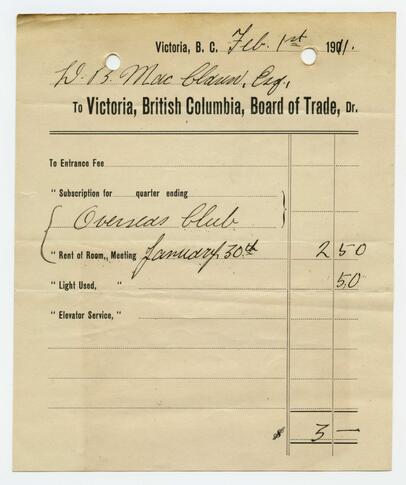 Victoria, B. C. Feb. 1st 1911.
D. B. Mac Claren, Esq.,
To Victoria, British Columbia, Board of Trade, Dr.
To Entrance Fee
" Subscription for quarter ending
Overseas Club
" Rent of Room,, Meeting January 30th 2 50
" Light Used, " 50
" Elevator Service, "
$ 3 —